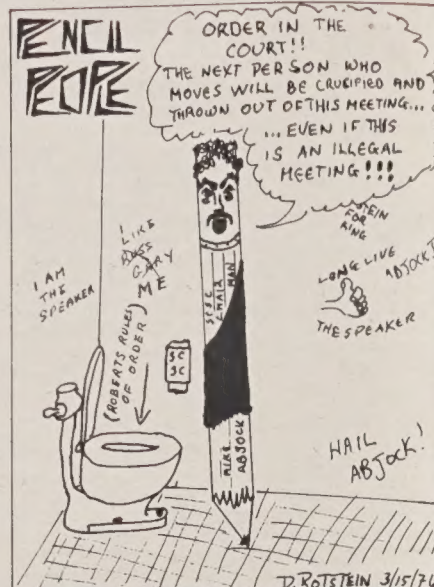 PENCIL
PEOPLE
ORDER IN THE
COURT!!
THE NEXT PERSON WHO
MOVES WILL BE CRUSIFIED AND
THROWN OUT OF THIS MEETING...
... EVEN IF THIS
IS AN ILLEGAL
MEETING!!!
I AM
THE
SPEAKER
I
LIKE
BOSS
GARY
ME
(ROBERTS RULES
OF ORDER)
SC
SC
SCSC
CHAIR
MAN
MIKE
ABJOCK
STEIN
FOR
KING
LONG LIVE
ABJOCK!
THE SPEAKER
HAIL
ABJOCK!
D. ROTSTEIN 3/15/7